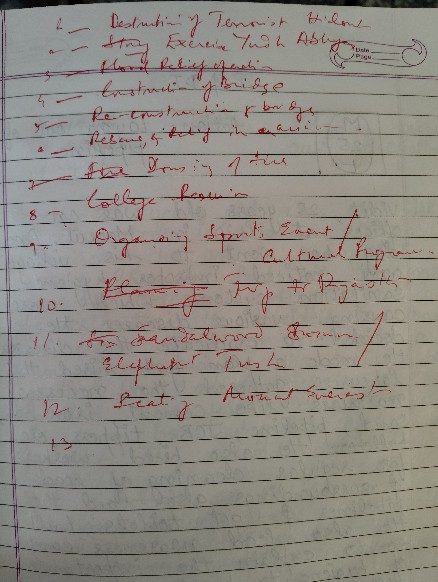 1 - Destruction of Terrorist Hideout
2 - Story Exercise Yudh Abhyas
Date
Page
3 - Flood Relief operation
4 - Construction of Bridge
5 - Re-construction of bridge
6 - Rescue & Relief in
7 - Fire Dousing of fire
8 - College Reunion
9 - Organising Sports Event
Cultural Program
10. Planning Trip to Rajasthan
11. Sandalwood
Elephant Tusk
12 Mount Everest
13